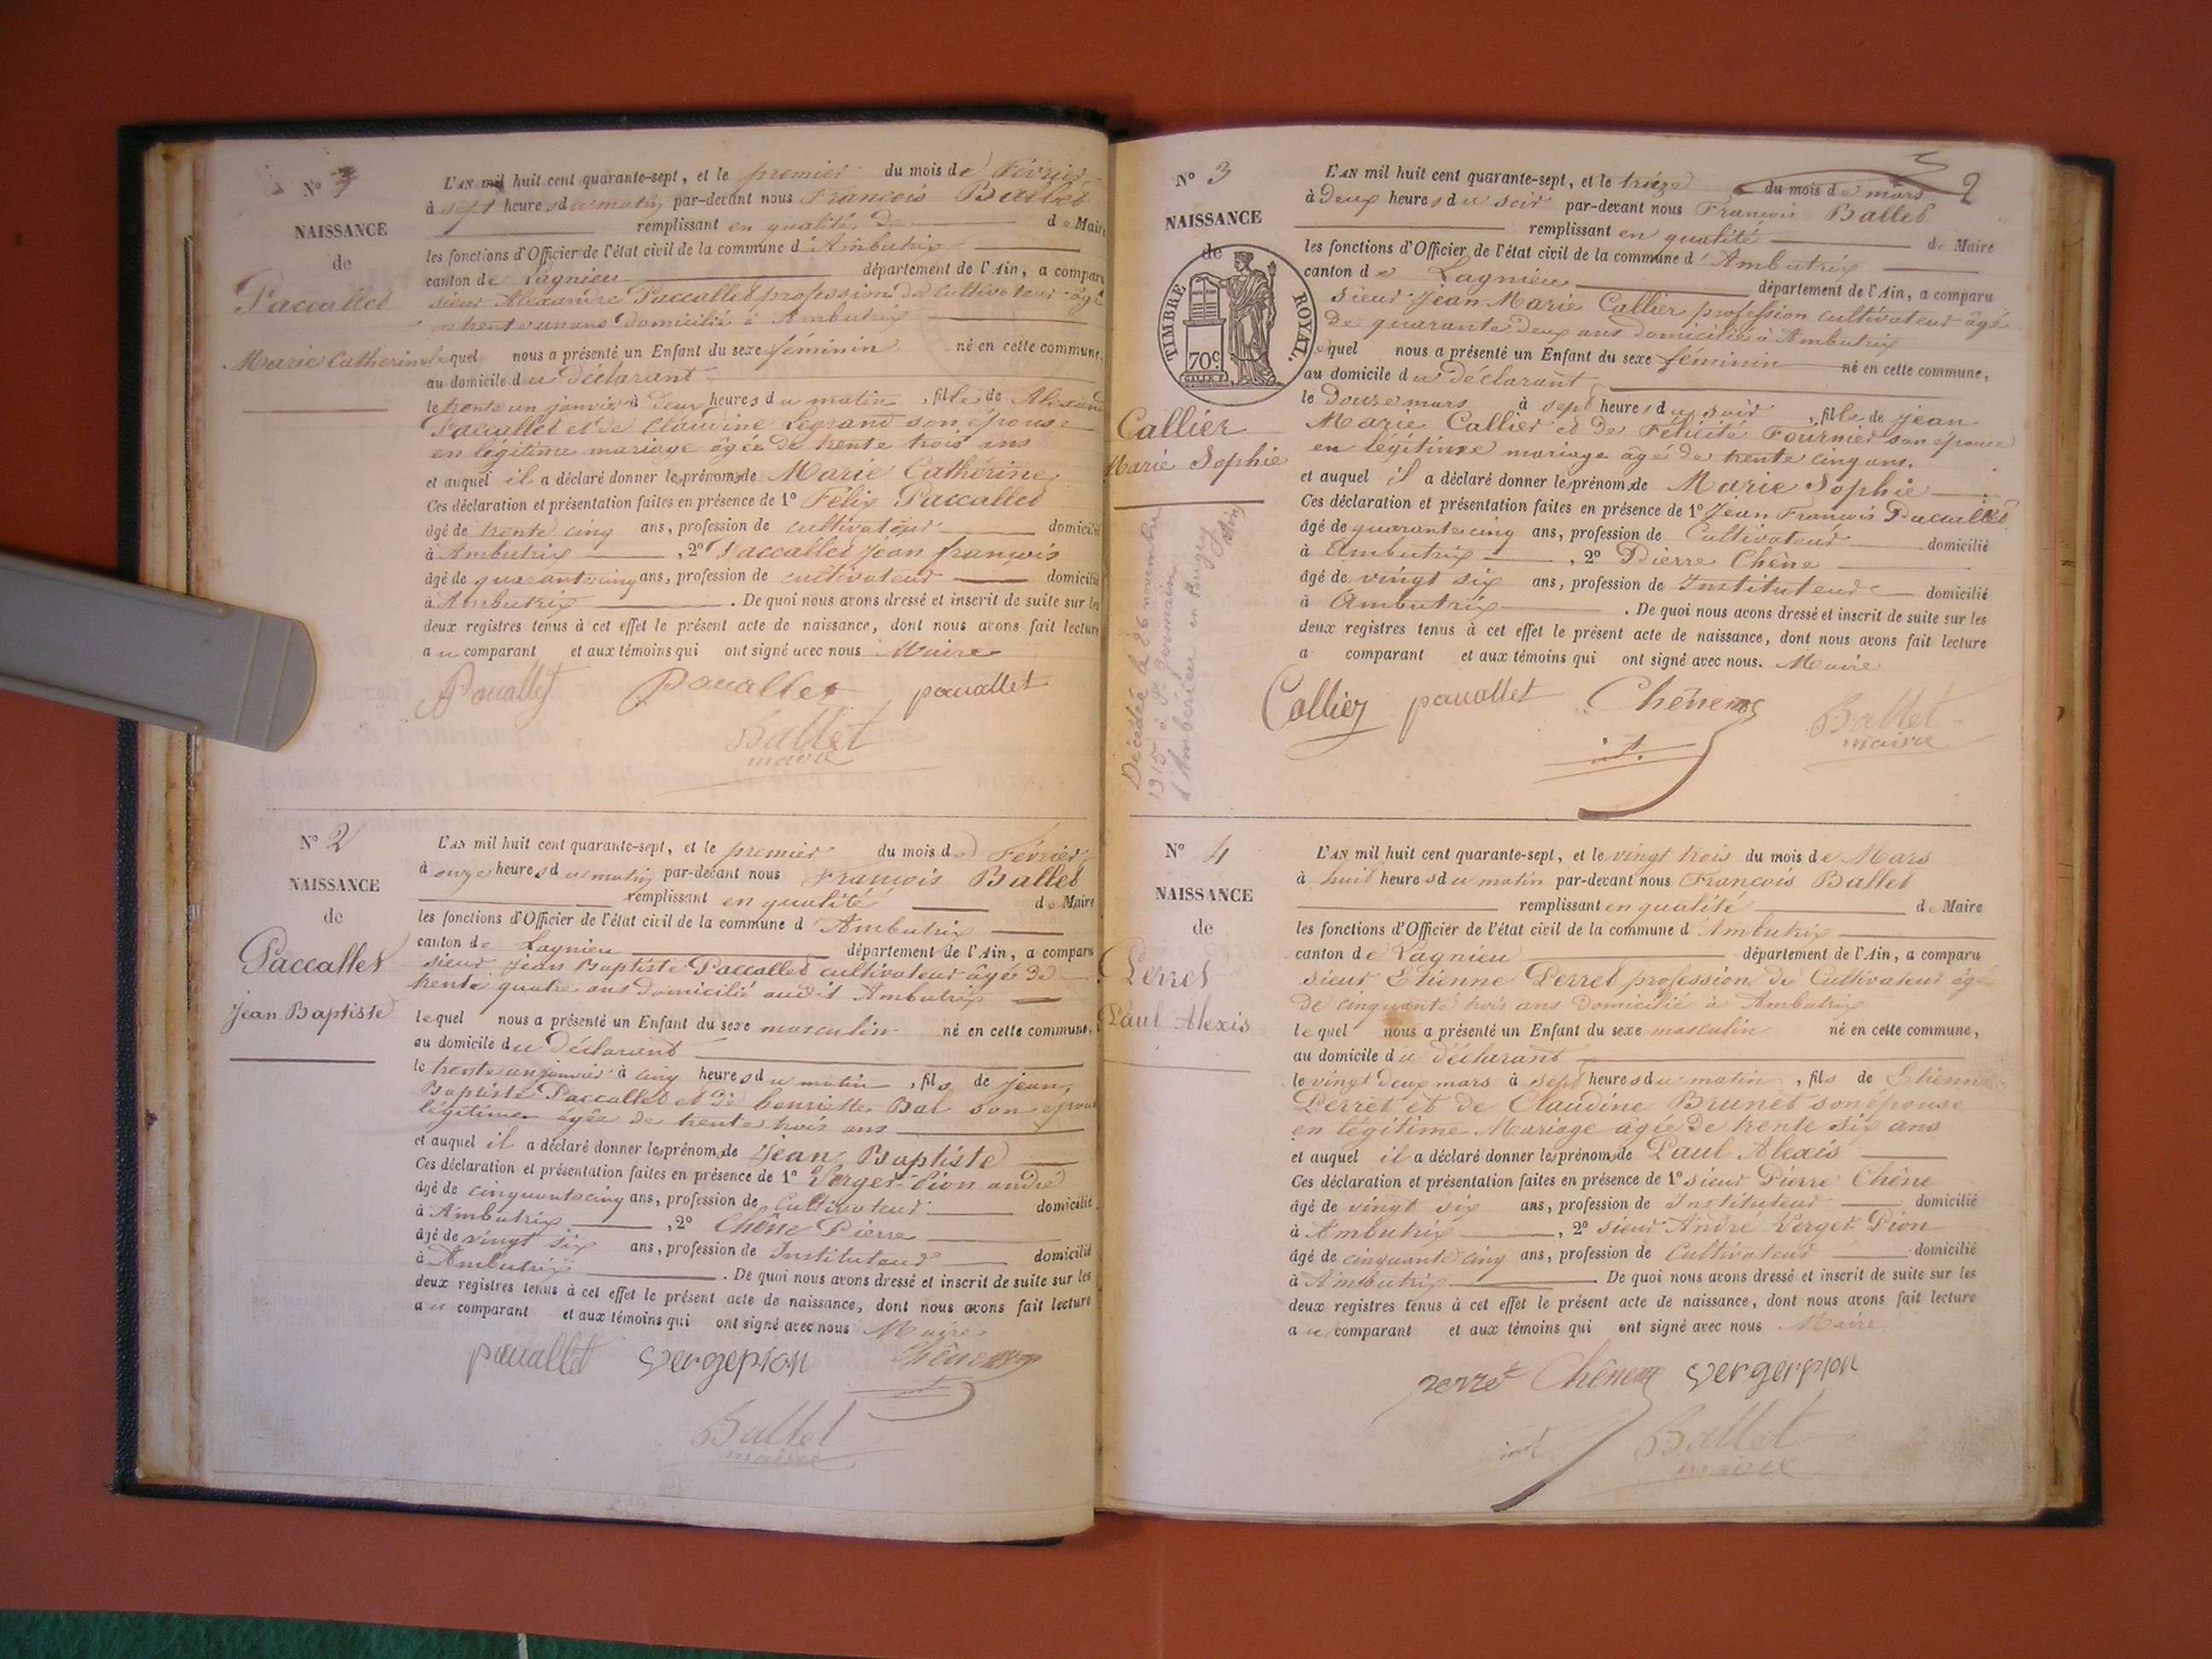 N° 1
NAISSANCE
de
Paccallet
Marie Catherine
L'AN mil huit cent quarante-sept, et le premier du mois de Février
à sept heures du matin par-devant nous François Ballet
remplissant en qualité de de Maire
les fonctions d'Officier de l'état civil de la commune d'Ambutrix
canton de Lagnieu département de l'Ain, a comparu
sieur Alexandre Paccallet profession de cultivateur âgé
trente un ans domicilié à Ambutrix
lequel nous a présenté un Enfant du sexe féminin né en cette commune,
au domicile du déclarant
le trente un janvier à deux heures du matin, fille de Alexandre
Paccallet et de Claudine Legrand son épouse
en légitime mariage âgée de trente trois ans
et auquel il a déclaré donner les prénoms de Marie Catherine
Ces déclaration et présentation faites en présence de 1° Félix Paccallet
âgé de trente cinq ans, profession de cultivateur domicilié
à Ambutrix, 2° Paccallet Jean françois
âgé de quarante cinq ans, profession de cultivateur domicilié
à Ambutrix. De quoi nous avons dressé et inscrit de suite sur les
deux registres tenus à cet effet le présent acte de naissance, dont nous avons fait lecture
au comparant et aux témoins qui ont signé avec nous Maire
Pacallet Pacallet pacallet
Ballet
maire
N° 2
NAISSANCE
de
Paccallet
Jean Baptiste
L'AN mil huit cent quarante-sept, et le premier du mois de Février
à onze heures du matin par-devant nous François Ballet
remplissant en qualité de Maire
les fonctions d'Officier de l'état civil de la commune d'Ambutrix
canton de Lagnieu département de l'Ain, a comparu
sieur Jean Baptiste Paccallet cultivateur âgé de
trente quatre ans domicilié audit Ambutrix
lequel nous a présenté un Enfant du sexe masculin né en cette commune,
au domicile du déclarant
le trente un janvier à cinq heures du matin, fils de jean
Baptiste Paccallet et de henriette Bal son épouse
légitime âgée de trente trois ans
et auquel il a déclaré donner les prénoms de Jean Baptiste
Ces déclaration et présentation faites en présence de 1° Verger-Pion andré
âgé de cinquante cinq ans, profession de Cultivateur domicilié
à Ambutrix, 2° Chêne Pierre
âgé de vingt six ans, profession de Instituteur domicilié
à Ambutrix. De quoi nous avons dressé et inscrit de suite sur les
deux registres tenus à cet effet le présent acte de naissance, dont nous avons fait lecture
au comparant et aux témoins qui ont signé avec nous Maire
pacallet vergepion Chêne
Ballet
maire
2
N° 3
NAISSANCE
de
TIMBRE ROYAL.
70 c.
Callier
Marie Sophie
Décédée le 26 novembre
1915 à St Germain
d'Ambérieu en Bugey
Ain
L'AN mil huit cent quarante-sept, et le treize du mois de mars
à deux heures du soir par-devant nous François Ballet
remplissant en qualité de Maire
les fonctions d'Officier de l'état civil de la commune d'Ambutrix
canton de Lagnieu département de l'Ain, a comparu
sieur Jean Marie Callier profession cultivateur âgé
de quarante deux ans domicilié à Ambutrix
lequel nous a présenté un Enfant du sexe féminin né en cette commune,
au domicile du déclarant
le douze mars à sept heures du soir, fille de jean
Marie Callier et de Félicité Fournier son épouse
en légitime mariage âgé de trente cinq ans.
et auquel il a déclaré donner les prénoms de Marie Sophie
Ces déclaration et présentation faites en présence de 1° Jean François Pacaillet
âgé de quarante cinq ans, profession de Cultivateur domicilié
à Ambutrix, 2° Pierre Chêne
âgé de vingt six ans, profession de Instituteur domicilié
à Ambutrix. De quoi nous avons dressé et inscrit de suite sur les
deux registres tenus à cet effet le présent acte de naissance, dont nous avons fait lecture
a comparant et aux témoins qui ont signé avec nous. Maire
Callier pacallet Chêne
Ballet
maire
N° 4
NAISSANCE
de
Perret
Paul Alexis
L'AN mil huit cent quarante-sept, et le vingt trois du mois de Mars
à huit heures du matin par-devant nous François Ballet
remplissant en qualité de Maire
les fonctions d'Officier de l'état civil de la commune d'Ambutrix
canton de Lagnieu département de l'Ain, a comparu
sieur Etienne Perret profession de Cultivateur âgé
de cinquante trois ans domicilié à Ambutrix
lequel nous a présenté un Enfant du sexe masculin né en cette commune,
au domicile du déclarant
le vingt deux mars à sept heures du matin, fils de Etienne
Perret et de Claudine Brunet son épouse
en légitime Mariage âgée de trente six ans
et auquel il a déclaré donner les prénoms de Paul Alexis
Ces déclaration et présentation faites en présence de 1° sieur Pierre Chêne
âgé de vingt six ans, profession de Instituteur domicilié
à Ambutrix, 2° sieur André Verger-Pion
âgé de cinquante cinq ans, profession de Cultivateur domicilié
à Ambutrix De quoi nous avons dressé et inscrit de suite sur les
deux registres tenus à cet effet le présent acte de naissance, dont nous avons fait lecture
au comparant et aux témoins qui ont signé avec nous Maire
perret Chêne vergerpion
Ballet
maire